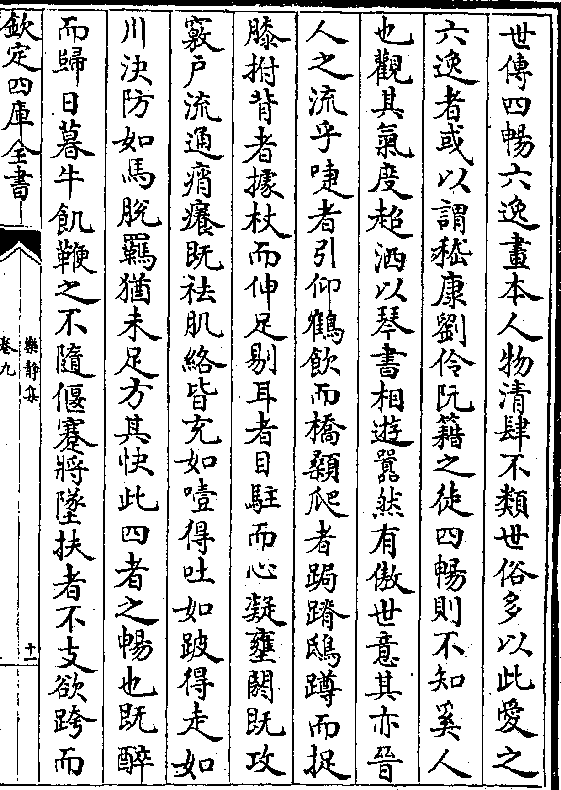 世傳四暢六逸畫本人物清肆不類世俗多以此愛之
六逸者或以謂嵇康劉伶阮籍之徒四暢則不知奚人
也觀其氣度超洒以琴書相遊囂然有傲世意其亦晉
人之流乎嚏者引仰鶴飲而橋顙爬者跼蹐鴟蹲而捉
膝拊背者據杖而伸足剔耳者目駐而心凝壅閼既攻
竅戸流通痟癢既袪肌絡皆充如噎得吐如跛得走如
川決防如馬脫羈猶未足方其快此四者之暢也既醉
而歸日暮牛飢鞭之不隨偃蹇將墜扶者不支欲跨而
欽定四庫全書
樂靜集
卷九
十一